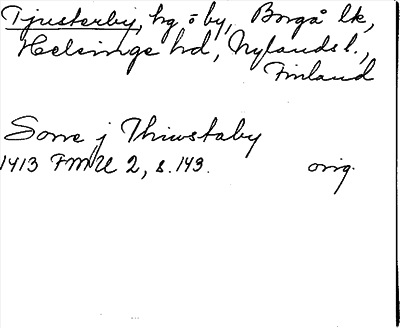 Tjusterby, hg o by, Borgå lk,
Helsinge hd, Nylands l.,
Finland
Sone j Thiwstaby
1413 FMU 2, s. 143. orig.